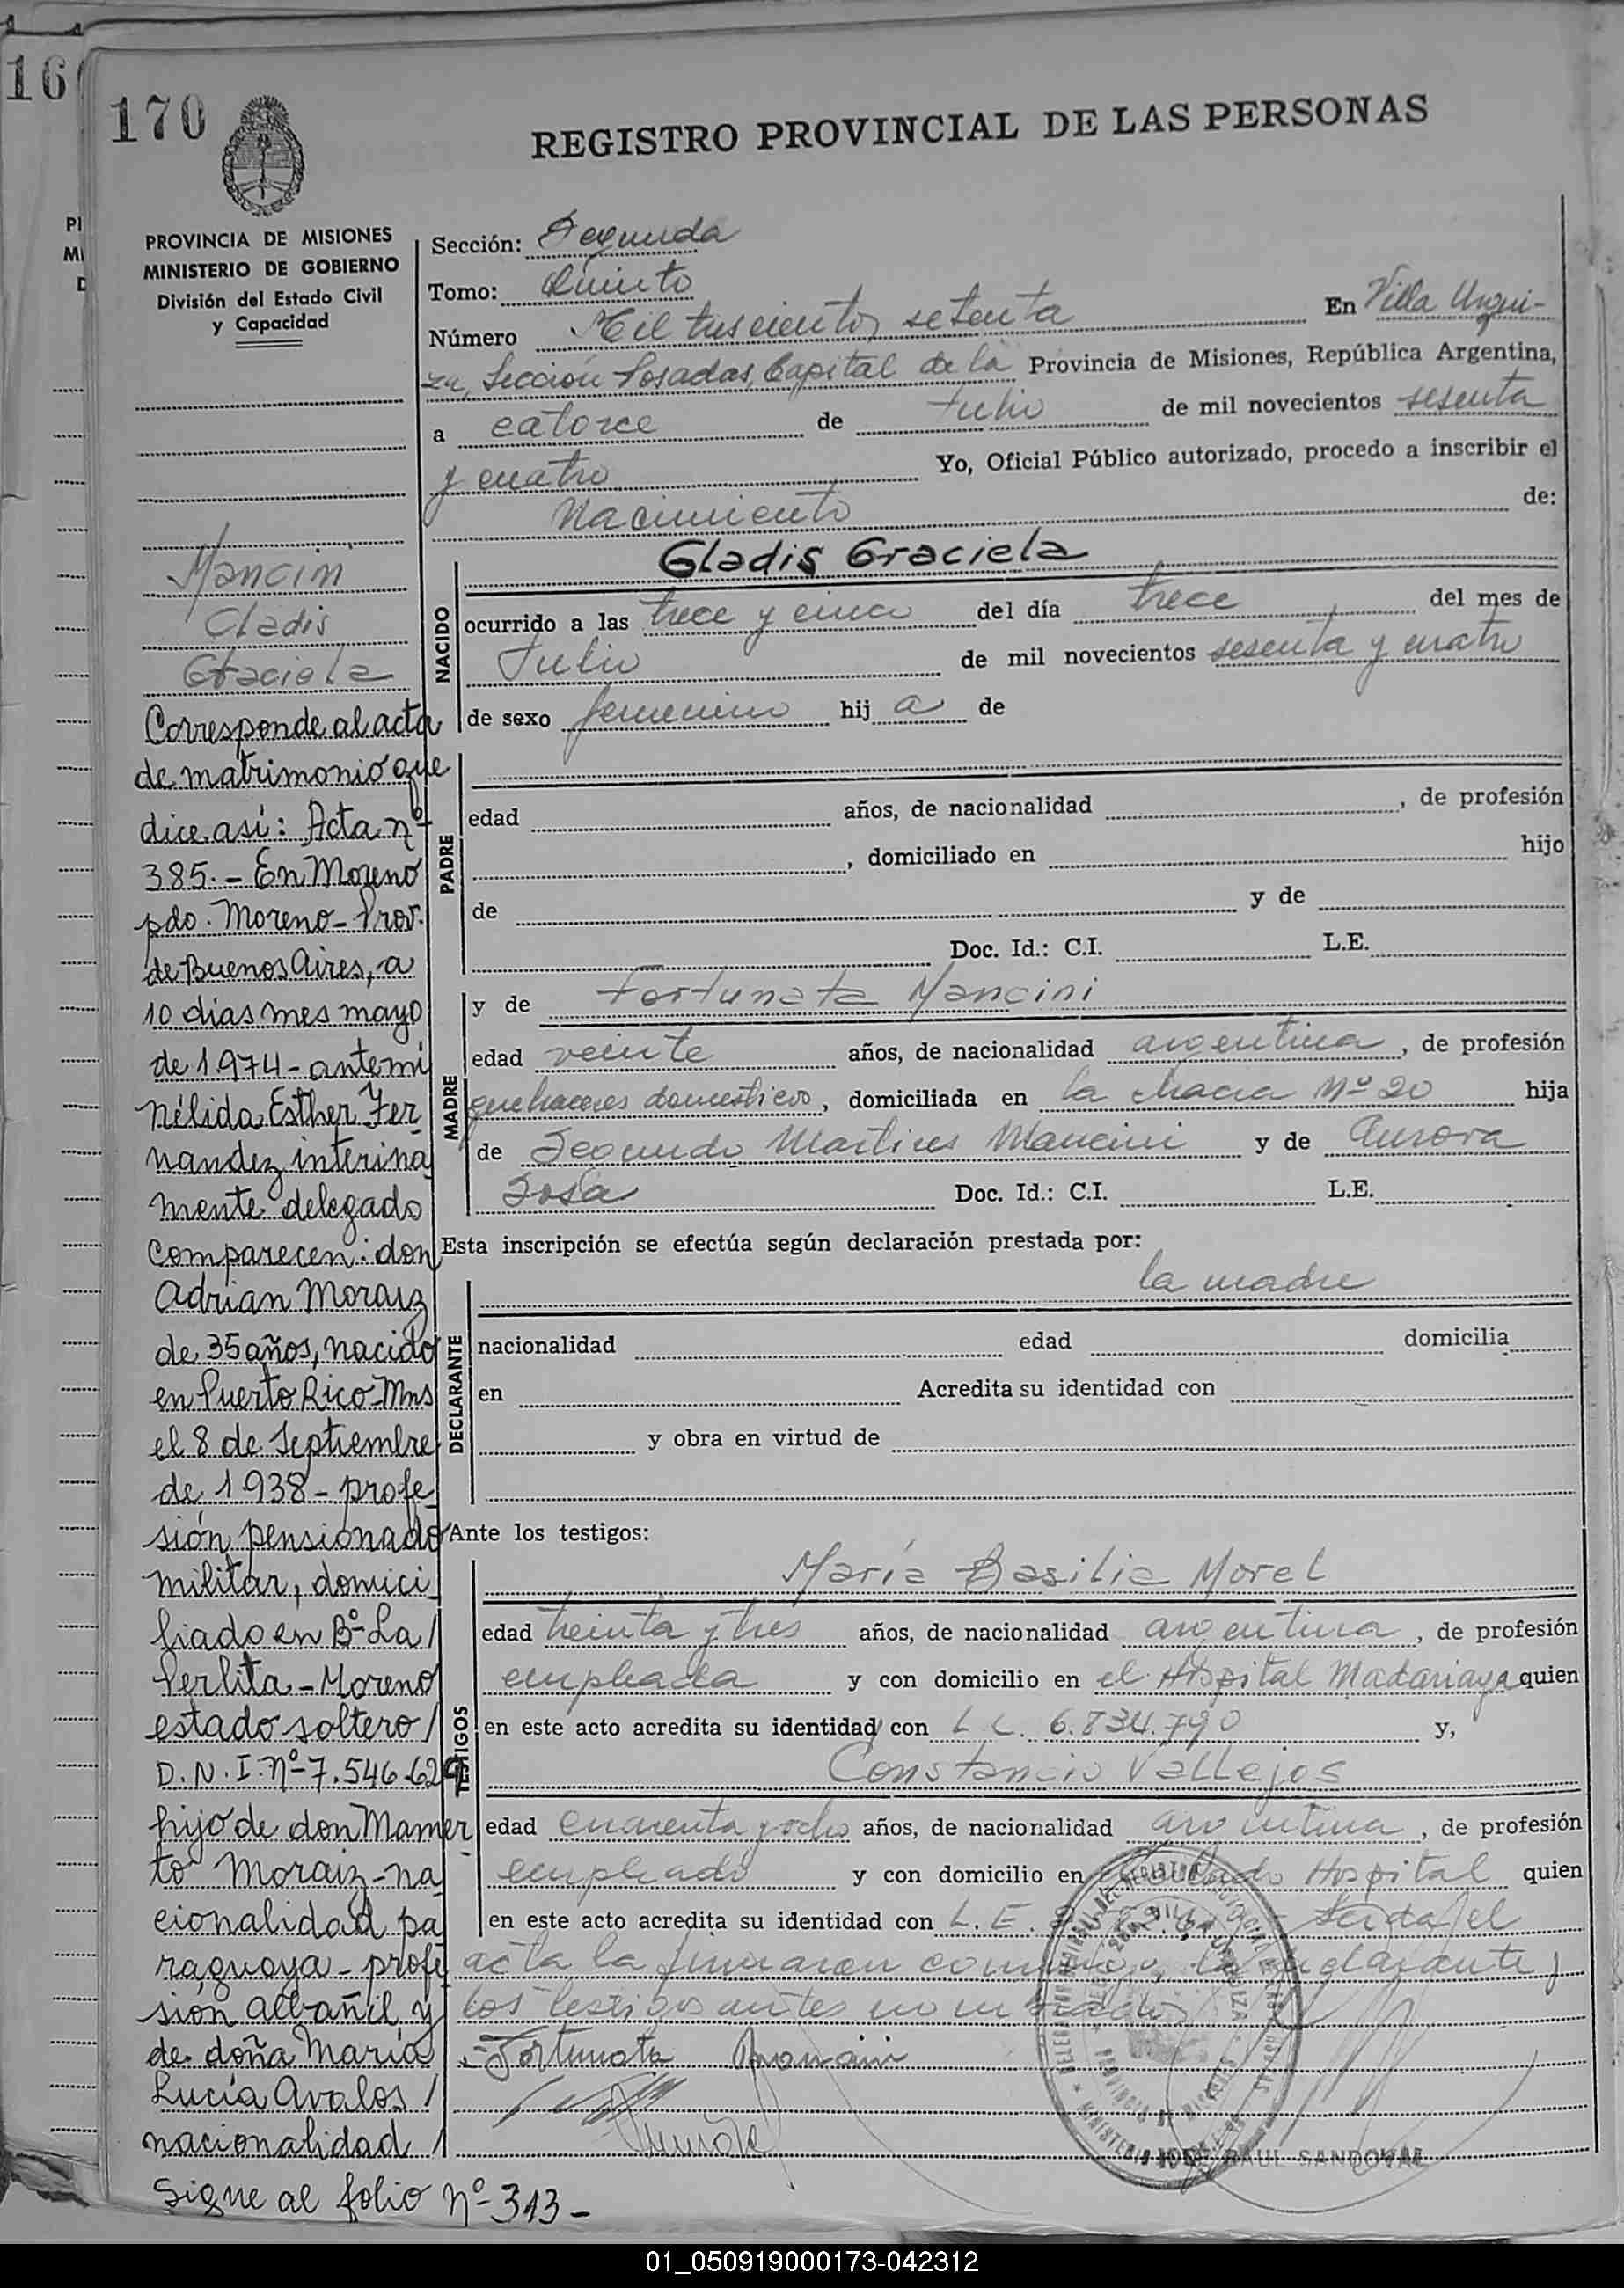 16
170
REGISTRO PROVINCIAL DE LAS PERSONAS
PROVINCIA DE MISIONES
MINISTERIO DE GOBIERNO
División del Estado Civil
y Capacidad
Sección: Segunda
Tomo: Quinto
Número Mil trescientos setenta En Villa Urqui-
za, Sección Posadas, Capital de la Provincia de Misiones, República Argentina,
a catorce de Julio de mil novecientos sesenta
y cuatro Yo, Oficial Público autorizado, procedo a inscribir el
Nacimiento de:
Mancini
Gladis
Graciela
Corresponde al acta
de matrimonio que
dice así: Acta nº
385.- En Moreno
pdo. Moreno- Prov.
de Buenos Aires, a
10 dias mes mayo
de 1974- ante mi
Nélida Esther Fer
nandez interina
mente delegado
comparecen: don
Adrian Moraiz
de 35 años, nacido
en Puerto Rico-Mns
el 8 de Septiembre
de 1938- profe
sión pensionado
militar, domici
liado en Bº La/
Perlita-Moreno
estado soltero/
D.N.I. Nº-7.546.629
hijo de don Mamer
to Moraiz-na
cionalidad pa
raguaya- profe
sión albañil y
de doña María
Lucía Avalos/
nacionalidad/
Sigue al folio Nº-313-
NACIDO
Gladis Graciela
ocurrido a las trece y cinco del día trece del mes de
Julio de mil novecientos sesenta y cuatro
de sexo femenino hij a de
PADRE
edad años, de nacionalidad , de profesión
, domiciliado en hijo
de y de
Doc. Id.: C.I. L.E.
MADRE
y de Fortunata Mancini
edad veinte años, de nacionalidad argentina, de profesión
quehaceres domesticos, domiciliada en la chacra Nº 20 hija
de Segundo Martires Mancini y de Aurora
Sosa Doc. Id.: C.I. L.E.
Esta inscripción se efectúa según declaración prestada por:
DECLARANTE
la madre
nacionalidad edad domicilia
en Acredita su identidad con
y obra en virtud de
Ante los testigos:
TESTIGOS
María Basilia Morel
edad treinta y tres años, de nacionalidad argentina, de profesión
empleada y con domicilio en el Hospital Madariaga quien
en este acto acredita su identidad con L C. 6.834.790 y,
Constancio Vallejos
edad cuarenta y ocho años, de nacionalidad argentina, de profesión
empleado y con domicilio en Hospital quien
en este acto acredita su identidad con L.E. Leida el
acta la firmaron conmigo la declarante y
los testigos antes nombrados
Fortunata Mancini
JOSE RAUL SANDOVAL
01_050919000173-042312